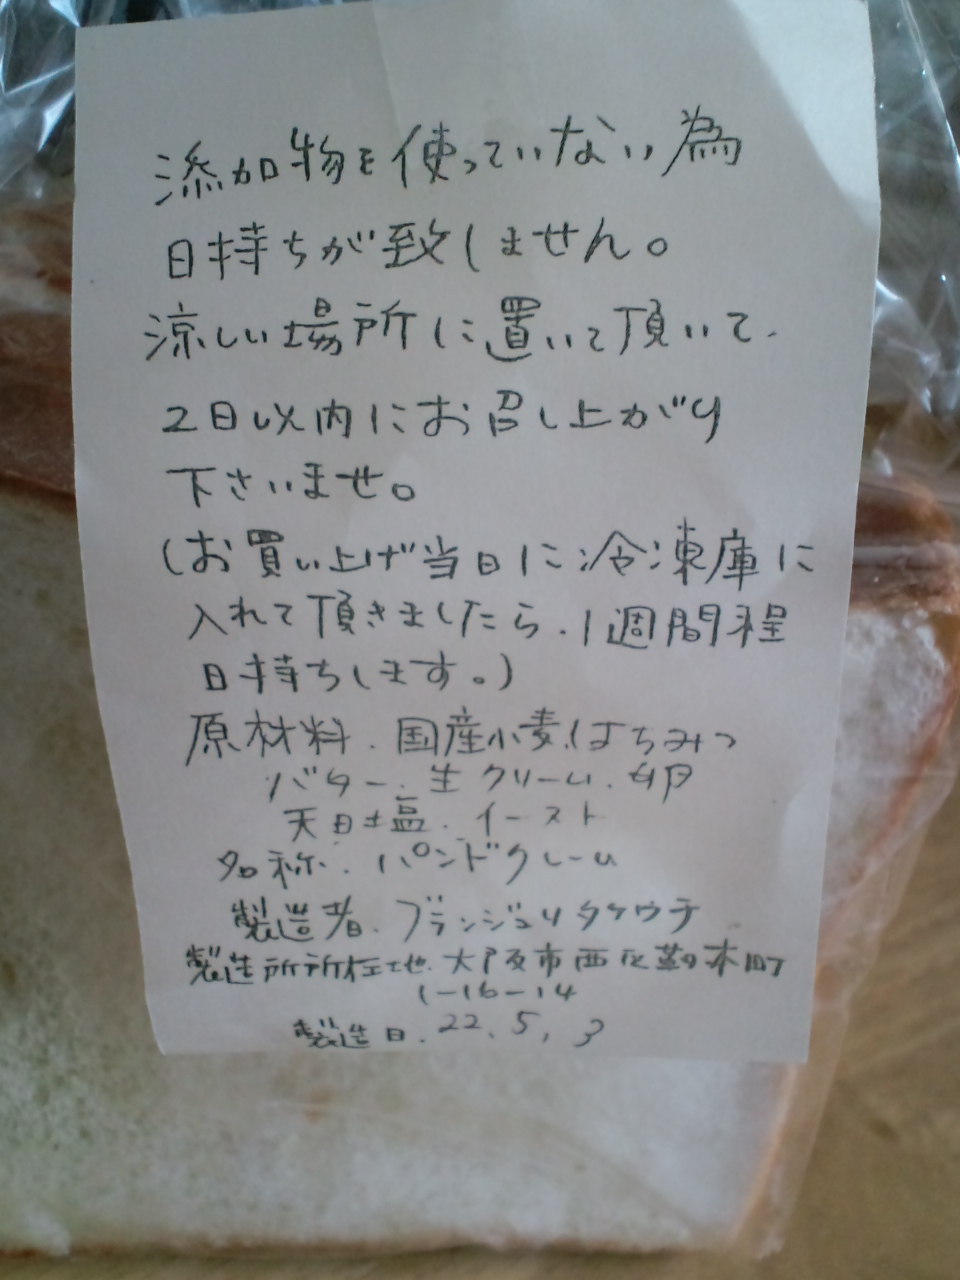 添加物を使っていない為
日持ちが致しません。
涼しい場所に置いて頂いて、
2日以内にお召し上がり
下さいませ。
(お買い上げ当日に冷凍庫に
入れて頂きましたら、1週間程
日持ちします。)
原材料、国産小麦、はちみつ
バター、生クリーム、卵
天日塩、イースト
名称、パンドクレーム
製造者、ブランジュリタケウチ
製造所所在地、大阪市西区靱本町
1-16-14
製造日、22、5、3